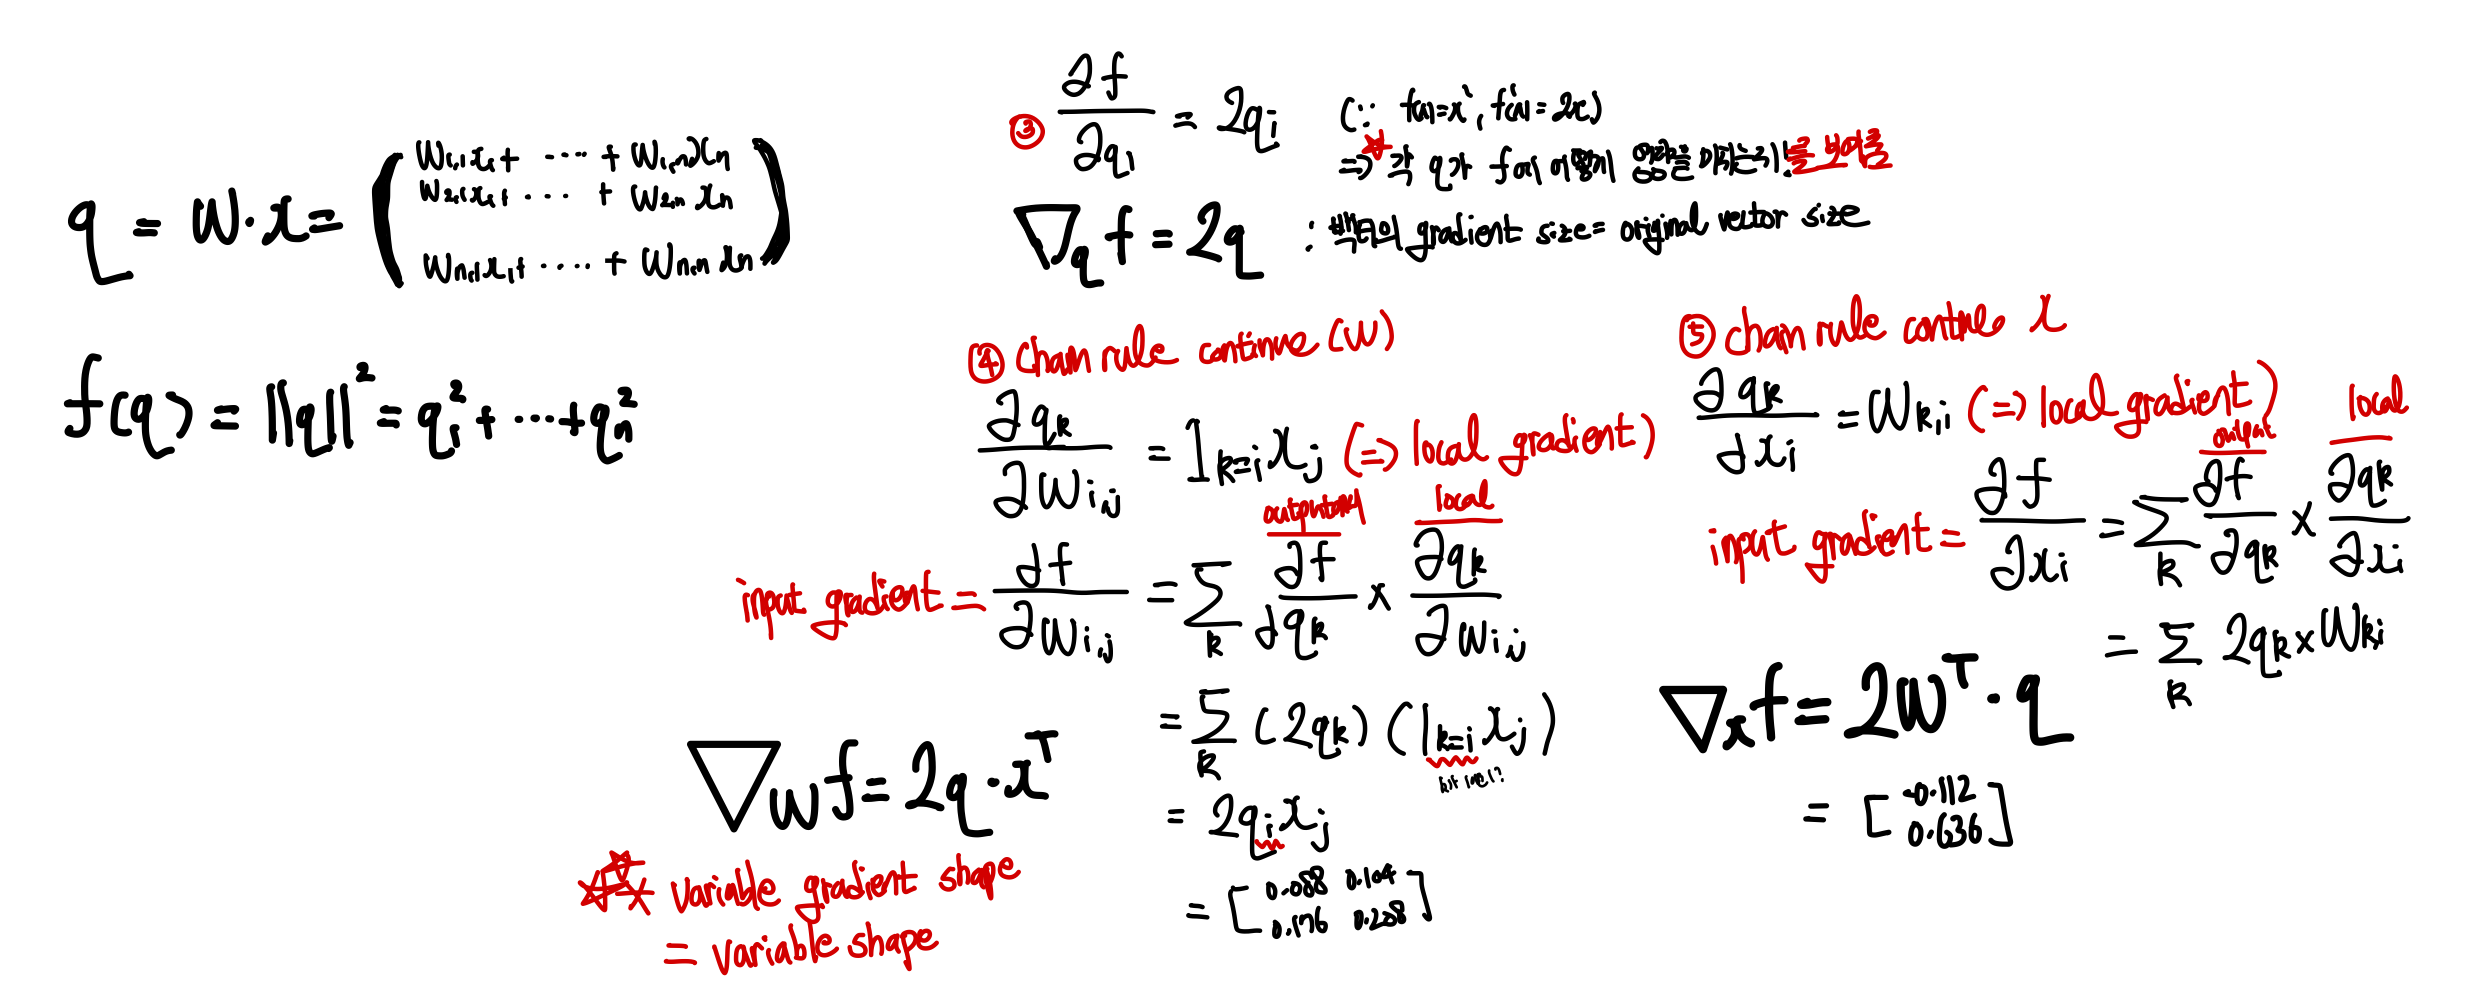 q = W·x = ( W₁,₁x₁ + ···· + W₁,n xn
W₂,₁x₁ + ···· + W₂,n xn
Wn,₁x₁ + ···· + Wn,n xn )
f(q) = ||q||² = q₁² + ··· + qn²
③ ∂f/∂qi = 2qi (∵ f(x)=x², f'(x)=2x)
=> 각 q가 f에 얼마나 영향을 미치는지!를 보여줌
∇q f = 2q : 벡터의 gradient size = original vector size
④ chain rule continue (W)
∂qk/∂Wi,j = 1k=i xj (=> local gradient)
output local
input gradient = ∂f/∂Wi,j = Σk ∂f/∂qk × ∂qk/∂Wi,j
= Σk (2qk)(1k=i xj)
= 2qi xj
= [ 0.088 0.104
0.176 0.208 ]
∇W f = 2q·xᵀ
variable gradient shape
= variable shape
⑤ chain rule x
∂qk/∂xi = Wk,i (=> local gradient)
output local
input gradient = ∂f/∂xi = Σk ∂f/∂qk × ∂qk/∂xi
= Σk 2qk × Wki
∇x f = 2Wᵀ·q
= [ -0.112
0.636 ]